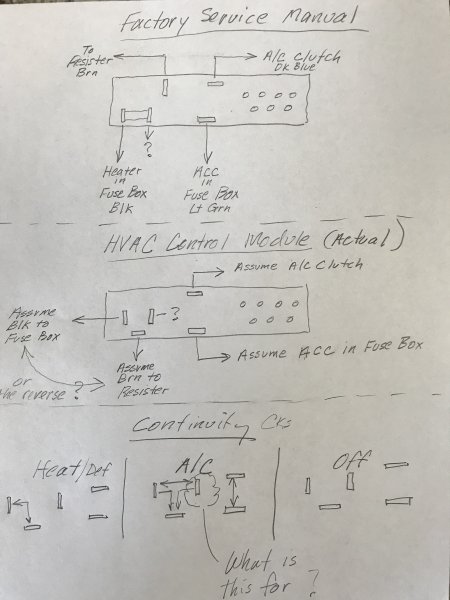 Factory Service Manual
To
Resister
Brn
A/C Clutch
DK Blue
?
Heater
in
Fuse Box
Blk
ACC
in
Fuse Box
Lt Grn
HVAC Control Module (Actual)
Assume A/C Clutch
Assume
Blk to
Fuse Box
?
Assume ACC in Fuse Box
or
the reverse?
Assume
Brn to
Resister
Continuity Cks
Heat/Def
A/C
Off
What is
this for?